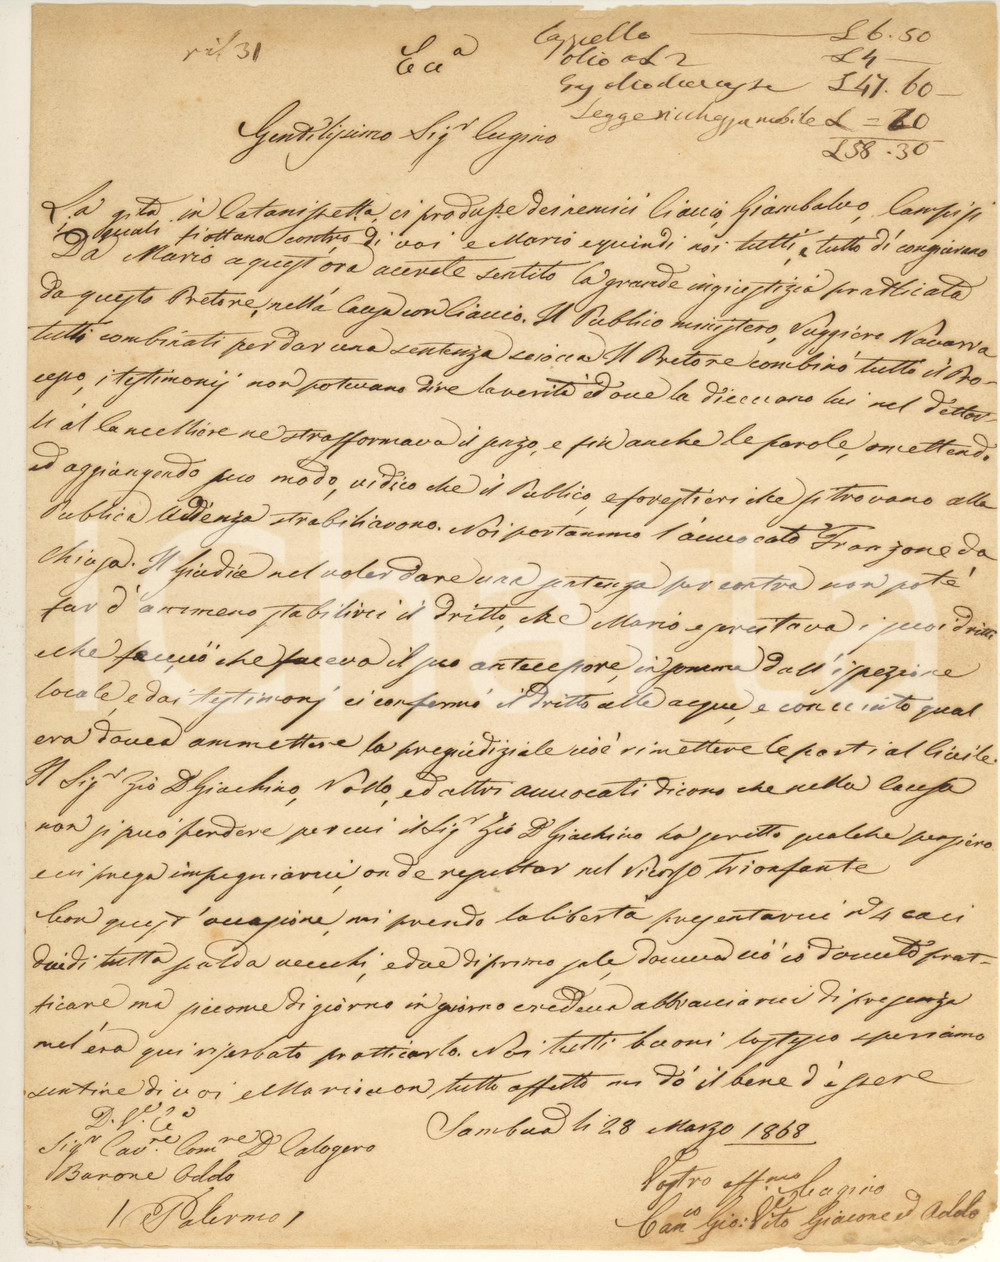 ril 31
Ecc.a
Cappello £ 6.50
Polio a L 2 £ 4
£ 47.60
Legge ricchezza mobile £ = 20
£ 58.30
Gentilissimo Sig.r Cugino
La gita in Caltanissetta ci produsse dei nemici Ciaccio, Giambalvo, Campisi
i quali fiottano contro di voi e Mario e quindi noi tutti, e tutto dì congiurano
Da Mario a quest'ora avrete sentito la grande ingiustizia pratticata
da questo Pretore, nella causa con Ciaccio. Il Publico ministero, Ruggiero Navarra
tutti combinati per dar una sentenza sciocca Il Pretore combinò tutto il Pro-
cesso, i testimonij non potevano dire la verità ed ove la dicevano lui nel dettar-
li al Cancelliere ne strafformava il senzo, e fin anche le parole, omettendo
ed aggiungendo suo modo, vi dico che il Publico, e forestieri che si trovano alla
Publica Udienza strabiliavono. Noi portammo l'avvocato Franzone da
Chiusa. Il Giudice nel voler dare una sentenza per contra non poté
far d'ammeno stabilirci il dritto, che Mario esercitava i suoi dritti
e che facciò che faceva il suo antecessore, in somma dall'ispezione
locale, e dai testimonj ci confermò il dritto alle acque, e conciento qual
era dovea ammettere la pregiudiziale cioè rimettere le parti al Civile.
Il Sig.r Zio D. Giachino, Vollo, ed altri avvocati dicono che nella causa
non si può perdere per cui il Sig.r Zio D. Giachino ha scritto qualche pensiero
e ci prega impegniarvi, onde resultar nel Ricorso trionfante
Con quest'occasione, mi prendo la libertà presentarvi n. 4 caci
duedi tutta salda vecchi, e due di primo sale, doveva ciò io dovuto prat-
ticare ma siccome di giorno in giorno credeva abbracciarvi di presenza
mel'era qui riserbato pratticarlo. Noi tutti buoni lostesso speriamo
sentire di voi e Mario con tutto affetto mi do' il bene d'essere
D. V. Ecc.a
Sambuca li 28 Marzo 1868
Sig.r Cav.re Com.re D. Calogero
Barone Oddo
Palermo
Vostro aff.mo Cugino
Can.co Gio: Vito Giacone ed Oddo
iCharta